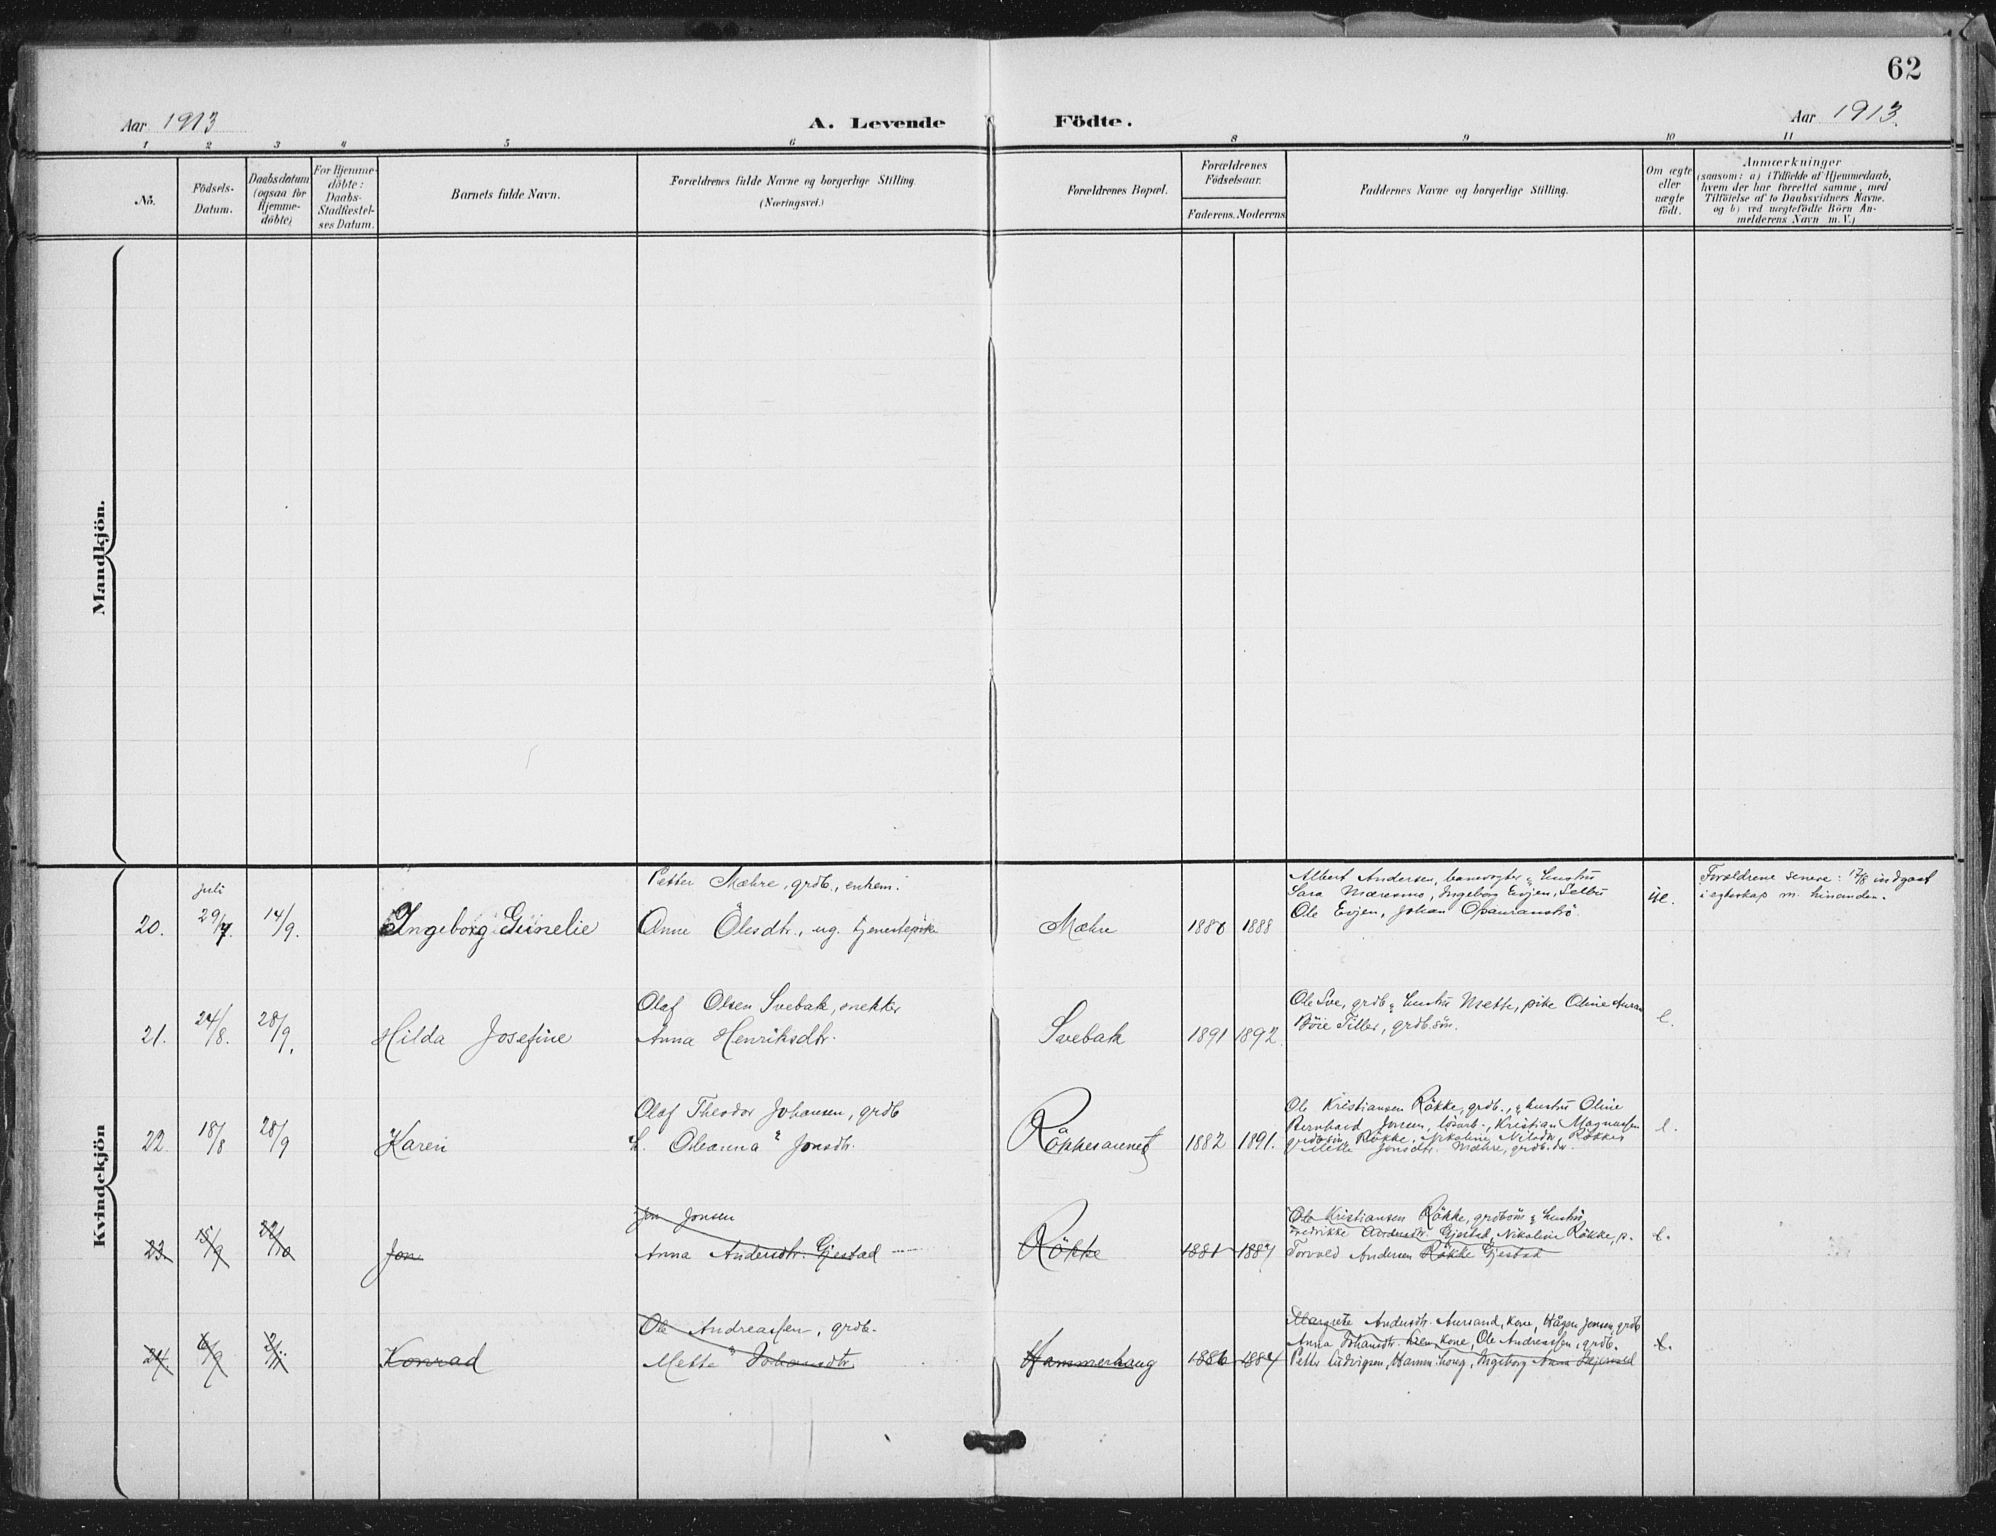 62
Aar 1913
A. Levende Födte.
Aar 1913.
1 2 3 4 5 6 8 9 10 11
No.
Födsels-
Datum.
Daabsdatum
(ogsaa for
Hjemme-
döbte)
For Hjemme-
döbte:
Daabs-
Stadfæstel-
ses Datum.
Barnets fulde Navn.
Forældrenes fulde Navne og borgerlige Stilling.
(Næringsvei.)
Forældrenes Bopæl.
Forældrenes
Födselsaar.
Faderens. Moderens.
Faddernes Navne og borgerlige Stilling.
Om ægte
eller
uægte
født.
Anmærkninger
(saasom: a) i Tilfælde af Hjemmedaab,
hvem der har forrettet samme, med
Tilføielse af to Daabsvidners Navne.
og b) ved uægtefödte Börn An-
melderens Navn m. V.)
Mandkjön.
Kvindekjön
20.
juli
29/7.
14/9.
Ingeborg Gunelie
Petter Mæhre, grdb., enkem.
Anne Olesdtr., ug. tjenestepike
Mæhre
1880 1888
Albert Andersen, banevogter & hustru
Sara Mæresmo, Ingeborg Evjen, Selbu
Ole Evjen, Johan
ue.
Forældrene senere: 17/8 indgaat
i egteskap m. hinanden.
21.
24/8.
28/9.
Hilda Josefine
Olaf Olsen Svebak, snekker
Anna Henriksdtr.
Svebak
1891 1892.
Ole Sve, grdb & hustru Mette, pike Oline
Böie Tiller, grdb.sön.
e.
22.
18/8
28/9
Karen
Olaf Theodor Johansen, grdb
Oleanna Jonsdtr.
Røkkesaunet
1882 1891.
Ole Kristiansen Røkke, grdb., & hustru Oline
Bernhard Jonsen, Kristian Magnussen
grdbsön Røkke, Nikoline Nilsdtr, Røkke
Mette Jonsdtr. Mæhre, grdb. dtr.
e.
23.
15/9
22/10
Jon
Jon Jonsen
Anna Andersdtr. Gjestad
Røkke
1881 1887
Ole Kristiansen Røkke, grdbsön & hustru
Fredrikke Andersdtr. Gjestad, Nikoline Røkke, p.
Torvald Andersen Røkke Gjestad
e.
24.
6/9
2/11
Konrad
Ole Andreassen, grdb.
Mette Johansdtr
Hammerhaug
1886 1884
Margrete Andersdtr. Aursand, kone, Hågen Jensen, grdb
Anna Johansdtr. kone, Ole Andreassen, grdb.
Petter Ludvigsen, Ingeborg Anna
e.